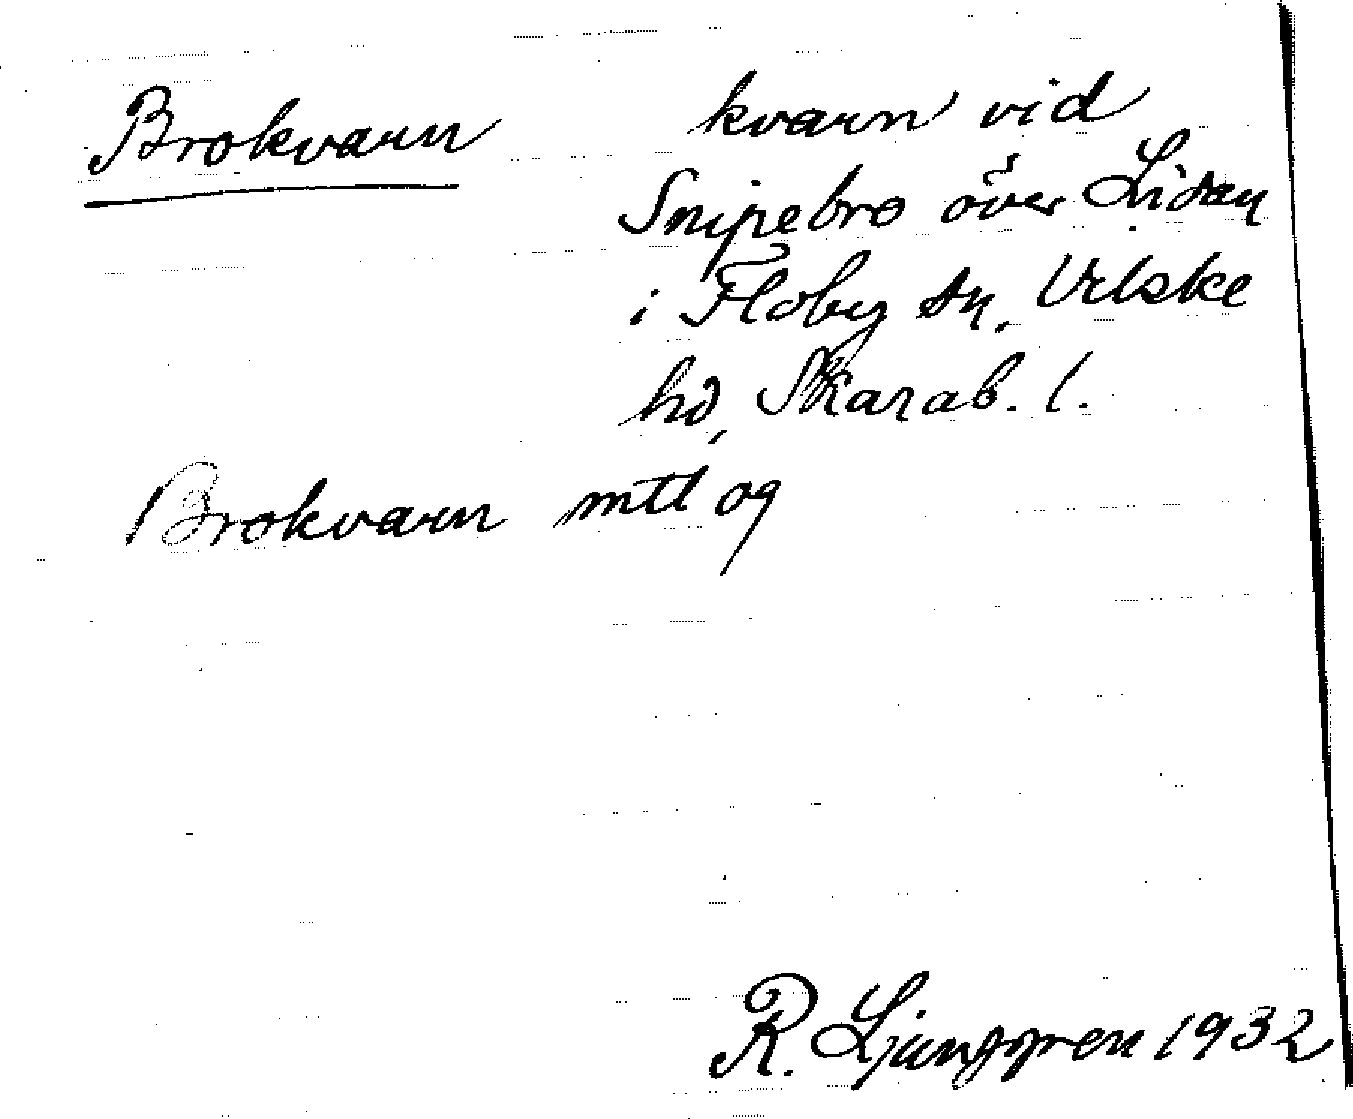 Brokvarn kvarn vid
Snipebro över Lidan
i Floby sn, Vilske
hd, Skarab. l.
Brokvarn mtl og
R. Ljunggren 1932